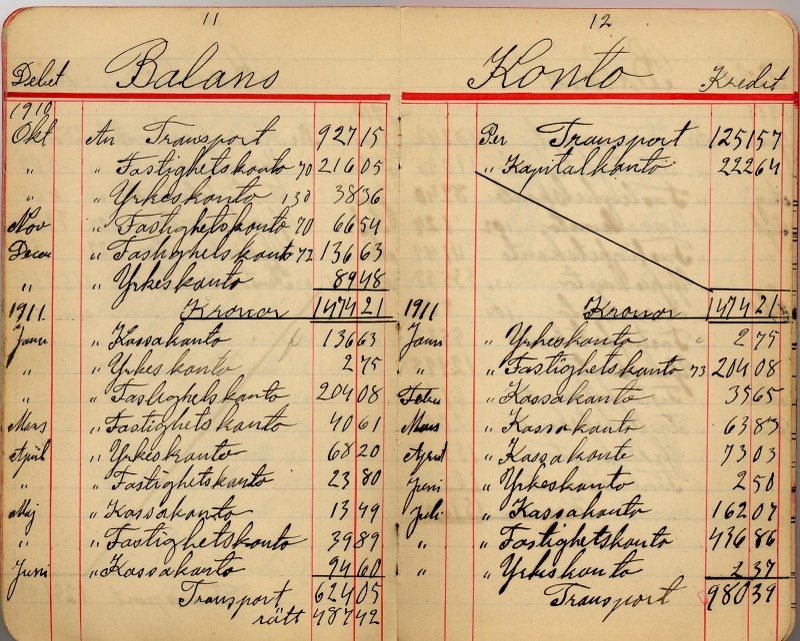 11
Debet Balans
1910
Okt An Transport 927 15
" " Fastighetskonto 70 216 05
" " Yrkeskonto 130 38 36
Nov " Fastighetskonto 70 66 54
Decem " Fastighetskonto 72 136 63
" " Yrkeskonto 89 48
1911 Kronor 1474 21
Janu " Kassakonto 136 63
" " Yrkeskonto 2 75
" " Fastighetskonto 204 08
Mars " Fastighetskonto 40 61
April " Yrkeskonto 68 20
" " Fastighetskonto 23 80
Maj " Kassakonto 13 49
" " Fastighetskonto 39 89
Juni " Kassakonto 94 60
Transport 624 05
rätt 487 42
12
Konto Kredit
Per Transport 1251 57
" Kapitalkonto 222 64
1911 Kronor 1474 21
Janu " Yrkeskonto 2 75
" Fastighetskonto 73 204 08
Febru " Kassakonto 35 65
Mars " Kassakonto 63 83
April " Kassakonto 73 03
Juni " Yrkeskonto 2 50
Juli " Kassakonto 162 07
" " Fastighetskonto 436 86
" " Yrkeskonto 2 37
Transport 980 39